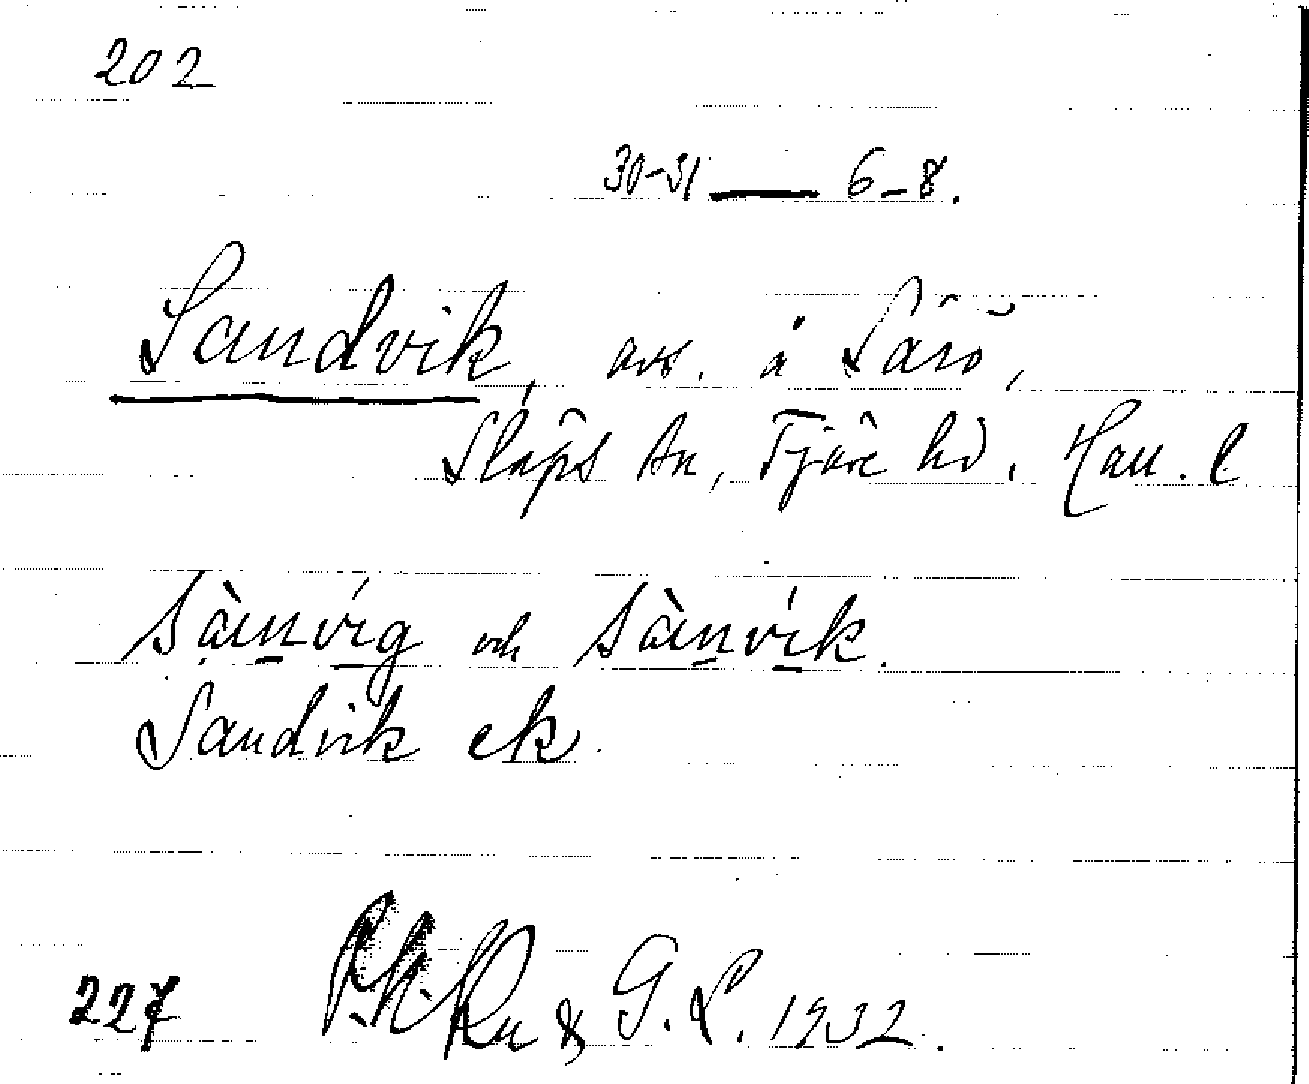 202
30-31 — 6-8.
Sandvik, avs. å Särö,
Släps sn, Fjäre hd. Hall. l
sànvíg och sànvík.
Sandvik ek.
227 & G. L. 1932.